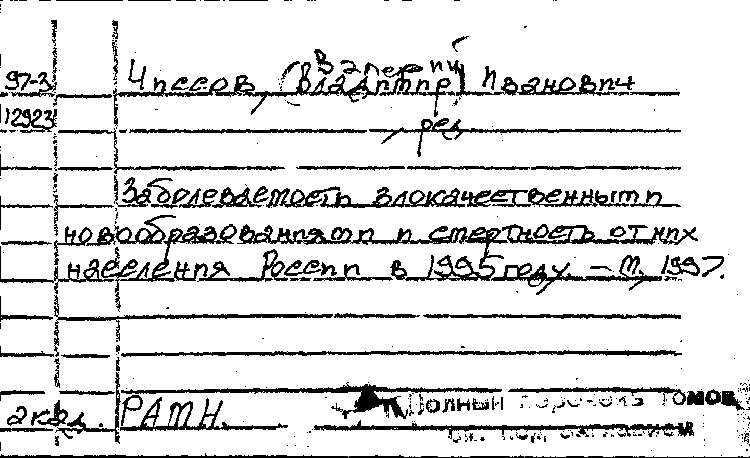 97-3 Чиссов, (Владимир) Валерий Иванович
12923 , ред.
Заболеваемость злокачественными
новообразованиями и смертность от них
населения России в 1995 году. – М., 1997.
акад. РАМН.
Полный перечень томов
см. под заглавием